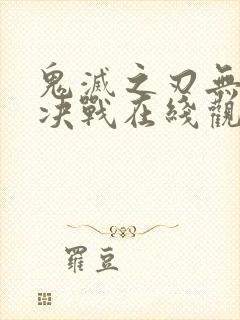 鬼滅之刃無
决戰在綫觀
羅豆